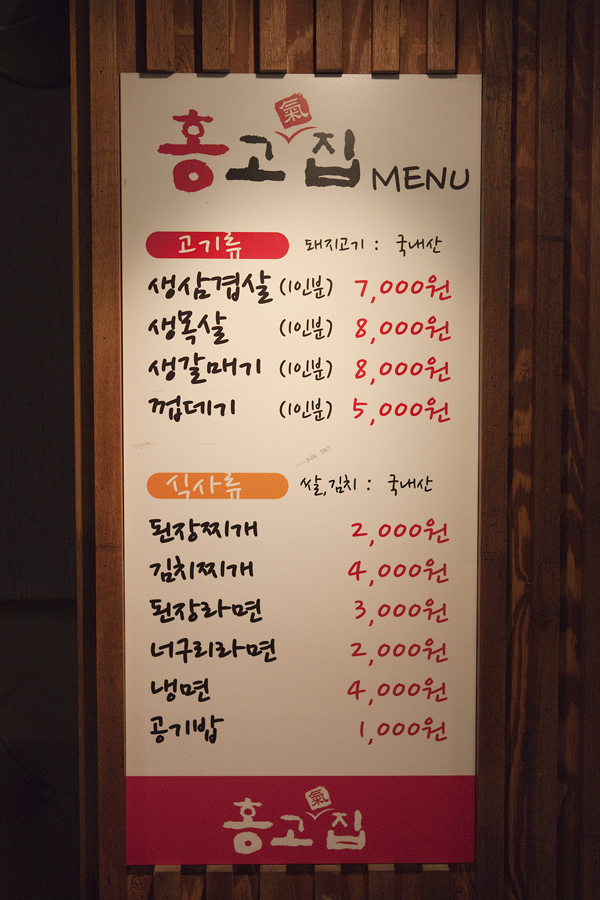 홍고氣집 MENU
고기류 돼지고기 : 국내산
생삼겹살 (1인분) 7,000원
생목살 (1인분) 8,000원
생갈매기 (1인분) 8,000원
껍데기 (1인분) 5,000원
식사류 쌀,김치 : 국내산
된장찌개 2,000원
김치찌개 4,000원
된장라면 3,000원
너구리라면 2,000원
냉면 4,000원
공기밥 1,000원
홍고氣집